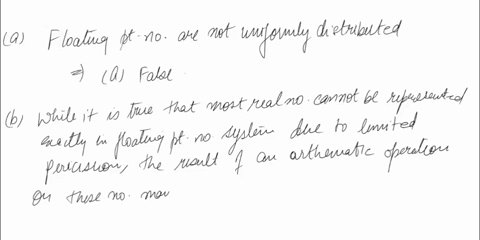 (a) Floating pt. no. are not uniformly distributed
⇒ (a) False.
(b) While it is true that most real no. cannot be represented
exactly in floating pt. no system due to limited
percision, the result of an arthematic operation
on these no. may